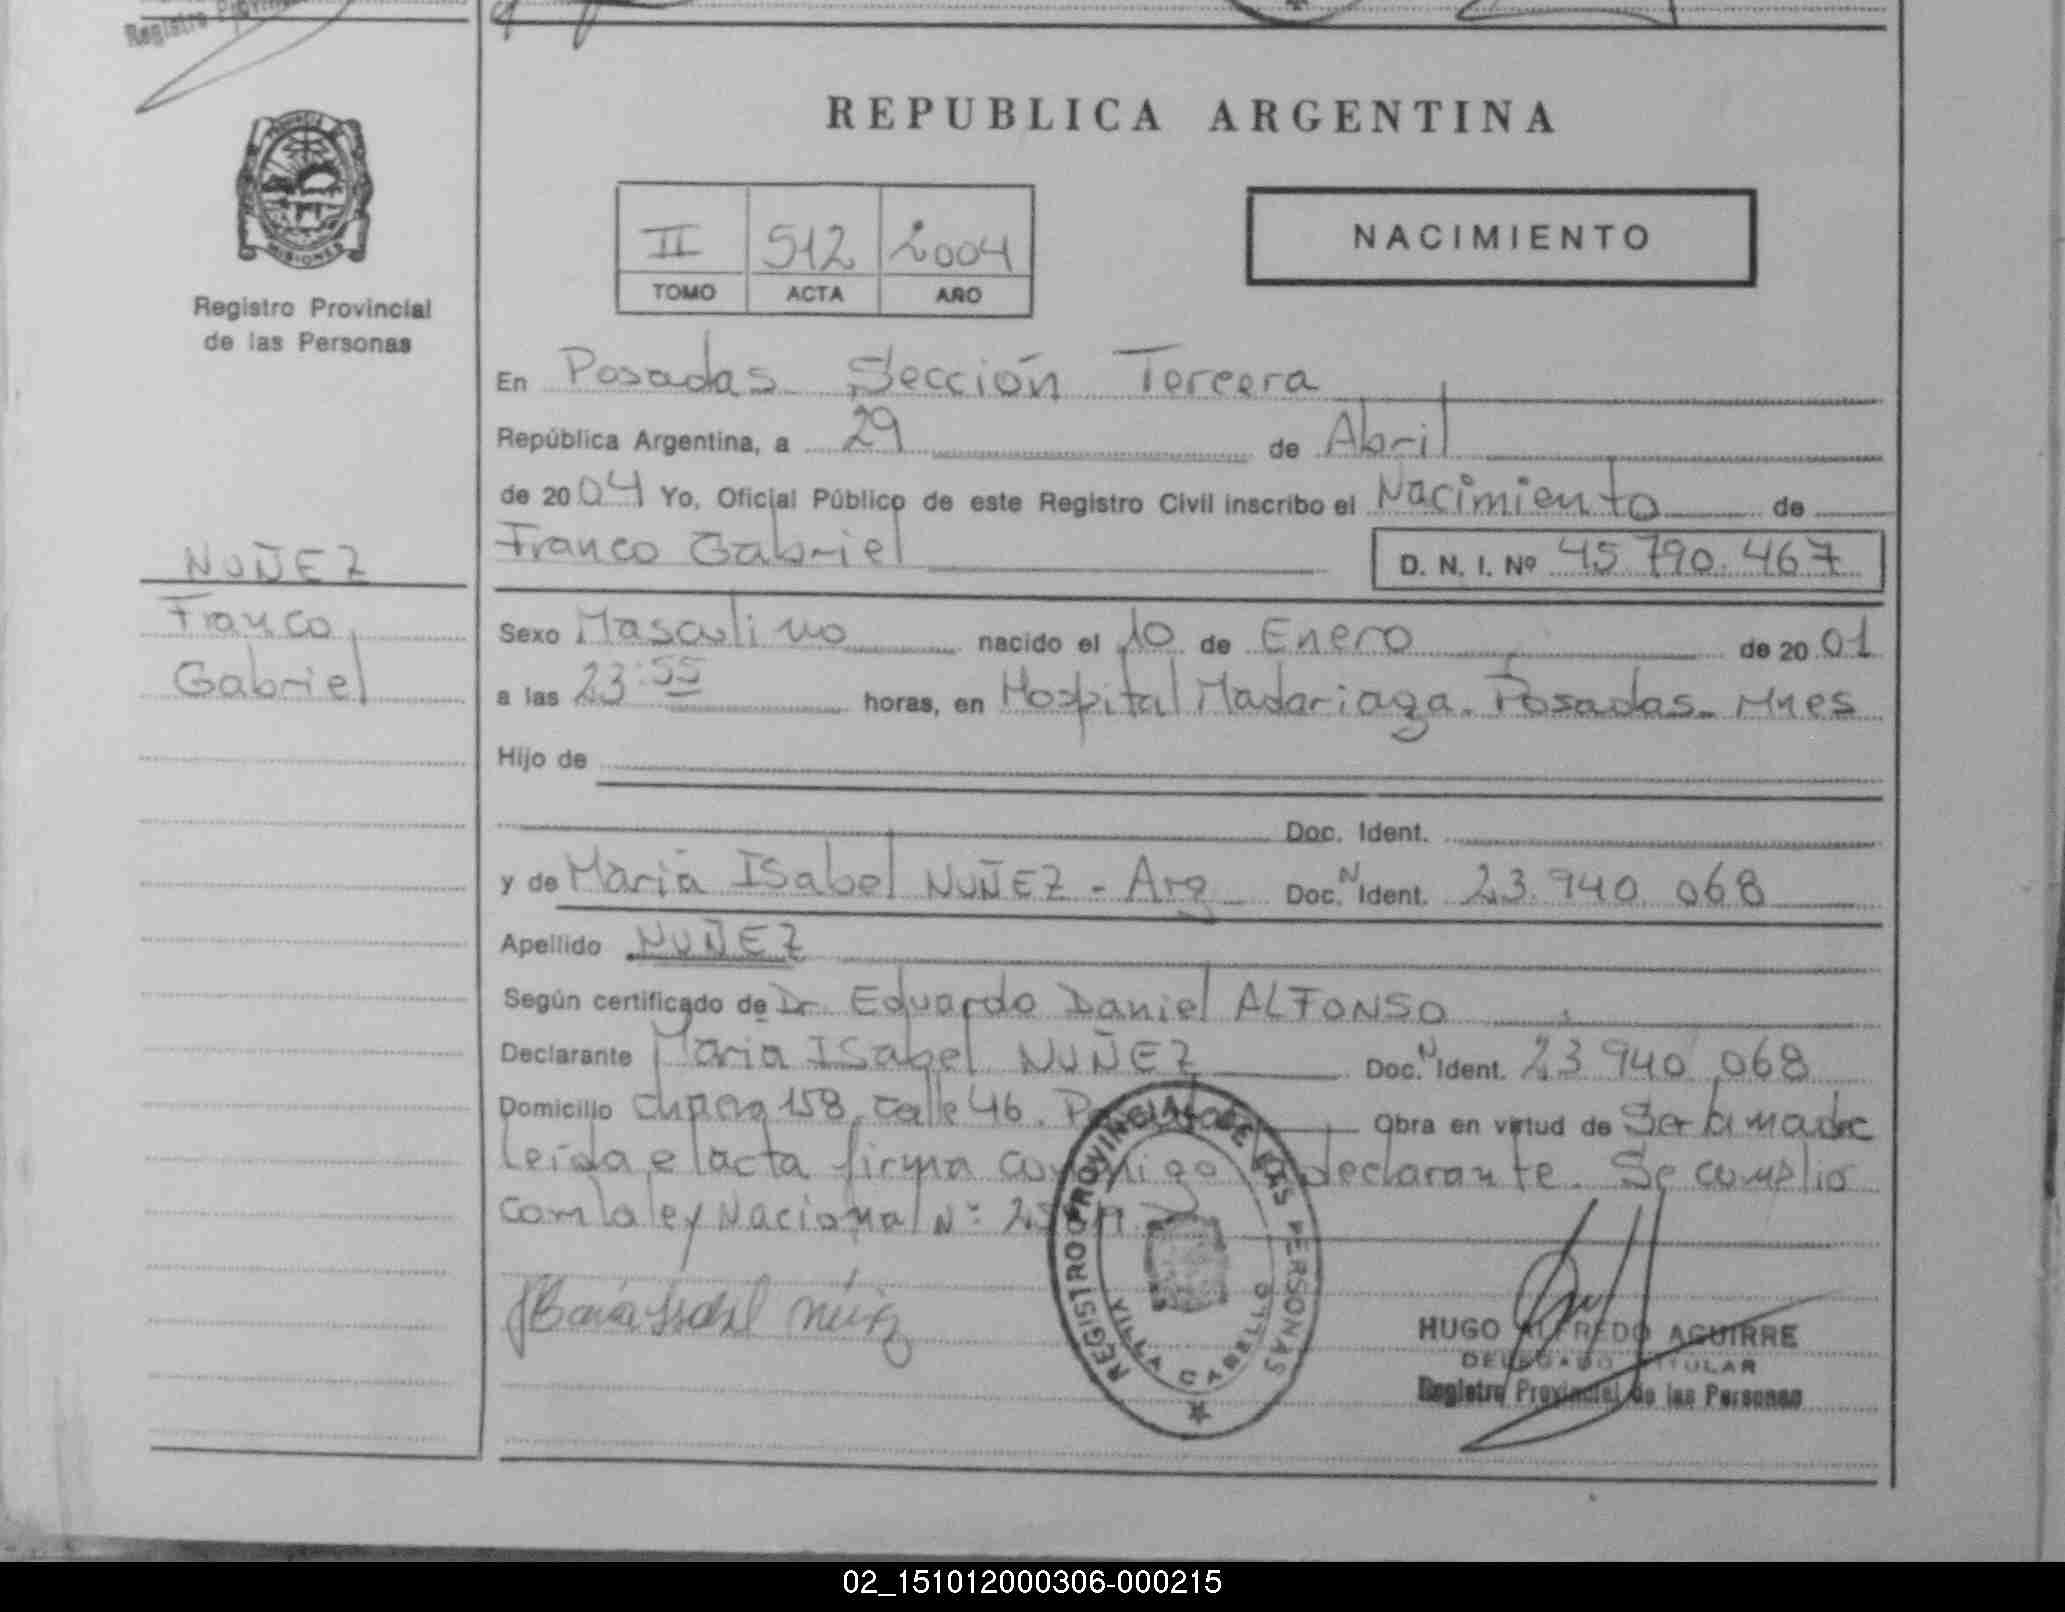 Registro Provin
REPUBLICA ARGENTINA
PROVINCIA DE
MISIONES
Registro Provincial
de las Personas
II 512 2004
TOMO ACTA AÑO
NACIMIENTO
En Posadas Sección Tercera
República Argentina, a 29 de Abril
de 2004 Yo, Oficial Público de este Registro Civil inscribo el Nacimiento de
Franco Gabriel D. N. I. Nº 45.790.467
NUÑEZ
Franco
Gabriel
Sexo Masculino nacido el 10 de Enero de 20 01
a las 23:55 horas, en Hospital Madariaga. Posadas. Mnes
Hijo de
Doc. Ident.
y de María Isabel NUÑEZ - Arg Doc. N Ident. 23.940.068
Apellido NUÑEZ
Según certificado de Dr. Eduardo Daniel ALFONSO
Declarante María Isabel NUÑEZ Doc. N Ident. 23.940.068
Domicilio chacra 158, calle 46. Posadas Obra en virtud de Ser la madre
leída el acta firma conmigo declarante. Se cumplio
con la ley Nacional Nº:
María Isabel Núñez
REGISTRO PROVINCIAL DE LAS PERSONAS
VILLA CABELLO
HUGO ALFREDO AGUIRRE
DELEGADO TITULAR
Registro Provincial de las Personas
02_151012000306-000215